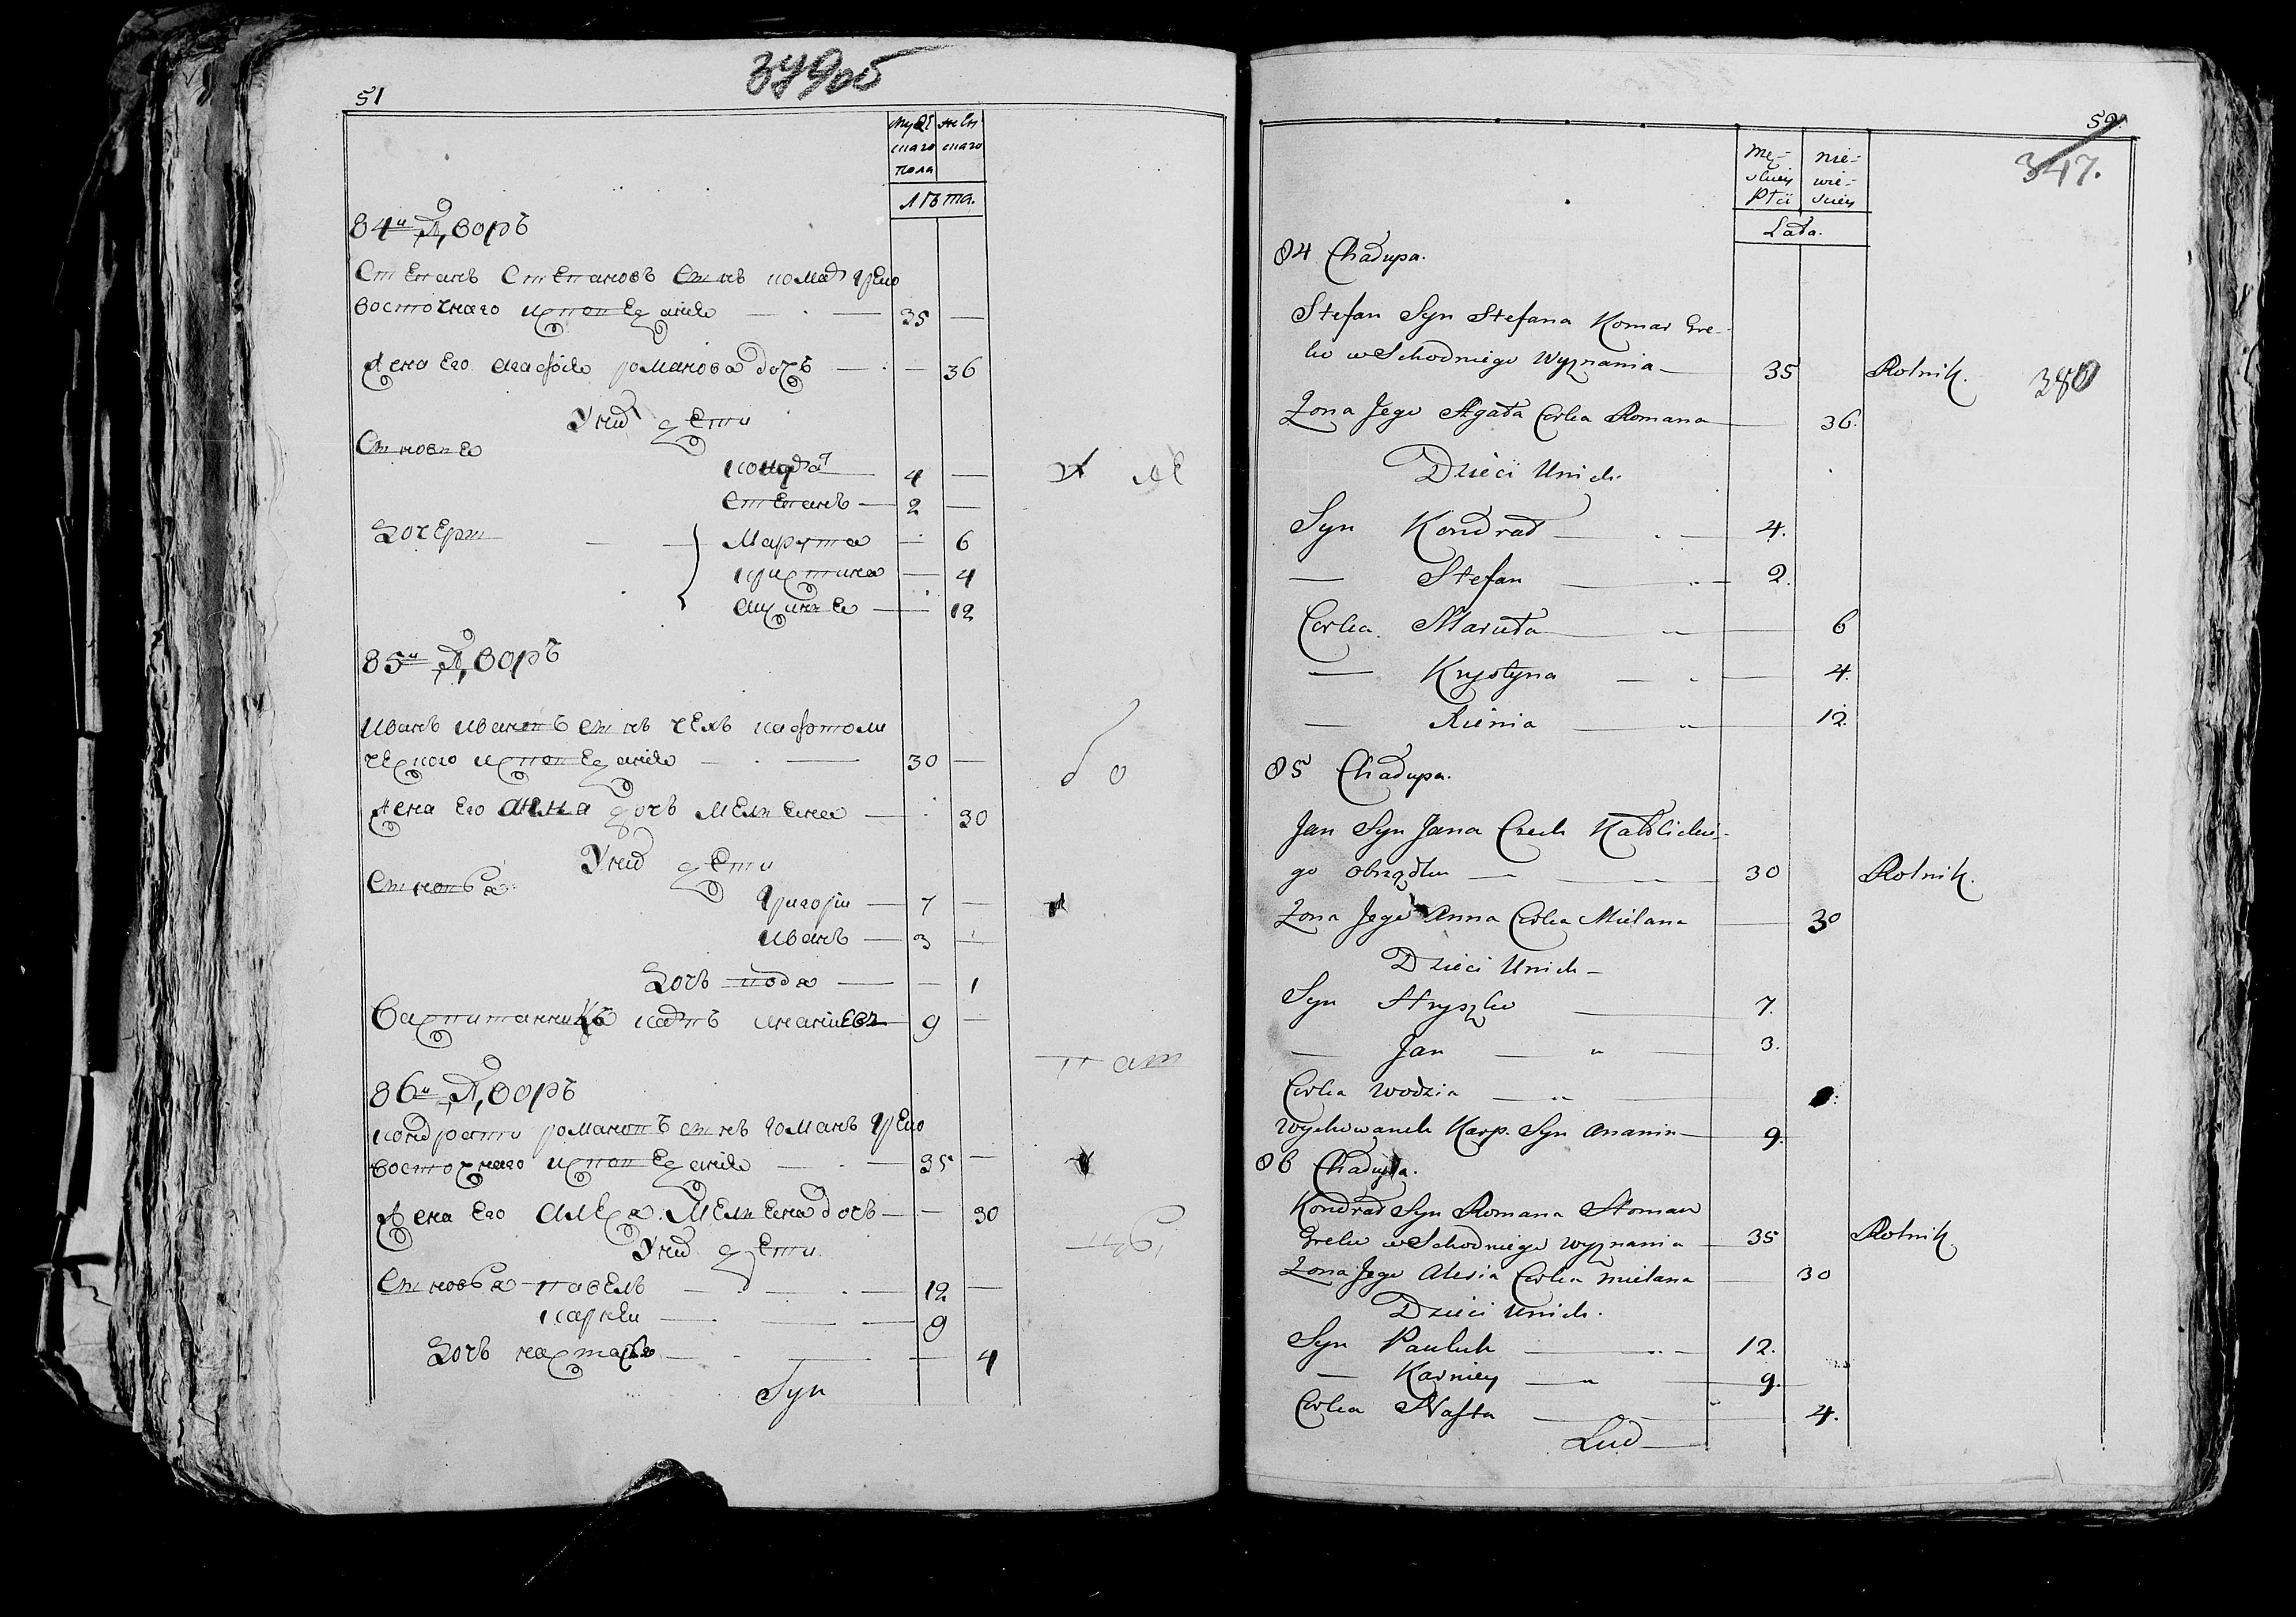 51
379об
муже
скаго
пола
женс
скаго
лѣта.
84й Дворъ
Степанъ Степановъ сынъ комар греко
восточнаго исповеданія 35
жена его агафія романова дочь 36
У них дети
Сыновья
кондрат 4
степанъ 2
Дочери
Марута 6
кристина 4
аксинья 12
85й Дворъ
иванъ ивановъ сынъ чехъ кафтоли
ческого исповеданія 30
жена его анна дочь мельяна 30
У них дети
Сыновья
григорій 7
иванъ 3
Дочь 1
Воспитанникъ карпъ 9
86й Дворъ
кондратій романовъ сынъ гоманъ греко
восточнаго исповеданія 35
жена его алеся мельяна дочь 30
У них дети
Сыновья павелъ 12
карней 9
Дочь настася 4
Syn
52
347.
Mę-
skiey
Płci
nie-
wie-
skiey
Lata.
84 Chałupa.
Stefan Syn Stefana Komar Gre-
ko wSchodniego Wyznania 35 Rolnik.
380
Zona Jego Agata Corka Romana 36.
Dzieci Unich
Syn Kondrad 4.
— Stefan 2.
Corka Maruta 6
— Krystyna 4.
— Xienia 12.
85 Chałupa.
Jan Syn Jana Czech Katolickie-
go obrządku 30 Rolnik.
Zona Jego Anna Corka Mielana 30
Dzieci Unich
Syn Hryszko 7.
— Jan 3.
Corka Wodzia
Wychowanek Karp. Syn Anania 9.
86 Chałupa.
Kondrad Syn Romana Homan
Greko wSchodniego wyznania 35 Rolnik.
Zona Jego Alesia Corka mielana 30
Dzieci Unich.
Syn Pauluk 12.
— Karniey 9.
Corka Nasta 4.
Lud